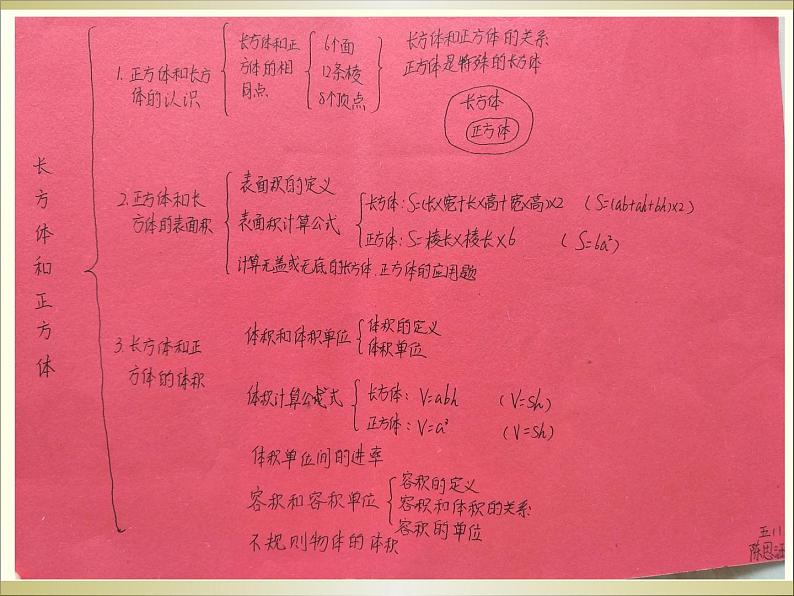 长方体和正方体
1. 正方体和长方
体的认识
长方体和正
方体的相
同点
6个面
12条棱
8个顶点
长方体和正方体的关系
正方体是特殊的长方体
长方体
正方体
2. 正方体和长
方体的表面积
表面积的定义
表面积计算公式
长方体:S=(长×宽+长×高+宽×高)×2 (S=(ab+ah+bh)×2)
正方体:S=棱长×棱长×6 (S=6a²)
计算无盖或无底的长方体.正方体的应用题
3. 长方体和正
方体的体积
体积和体积单位
体积的定义
体积单位
体积计算公式
长方体:V=abh (V=Sh)
正方体:V=a³ (V=Sh)
体积单位间的进率
容积和容积单位
容积的定义
容积和体积的关系
容积的单位
不规则物体的体积
五11
陈思